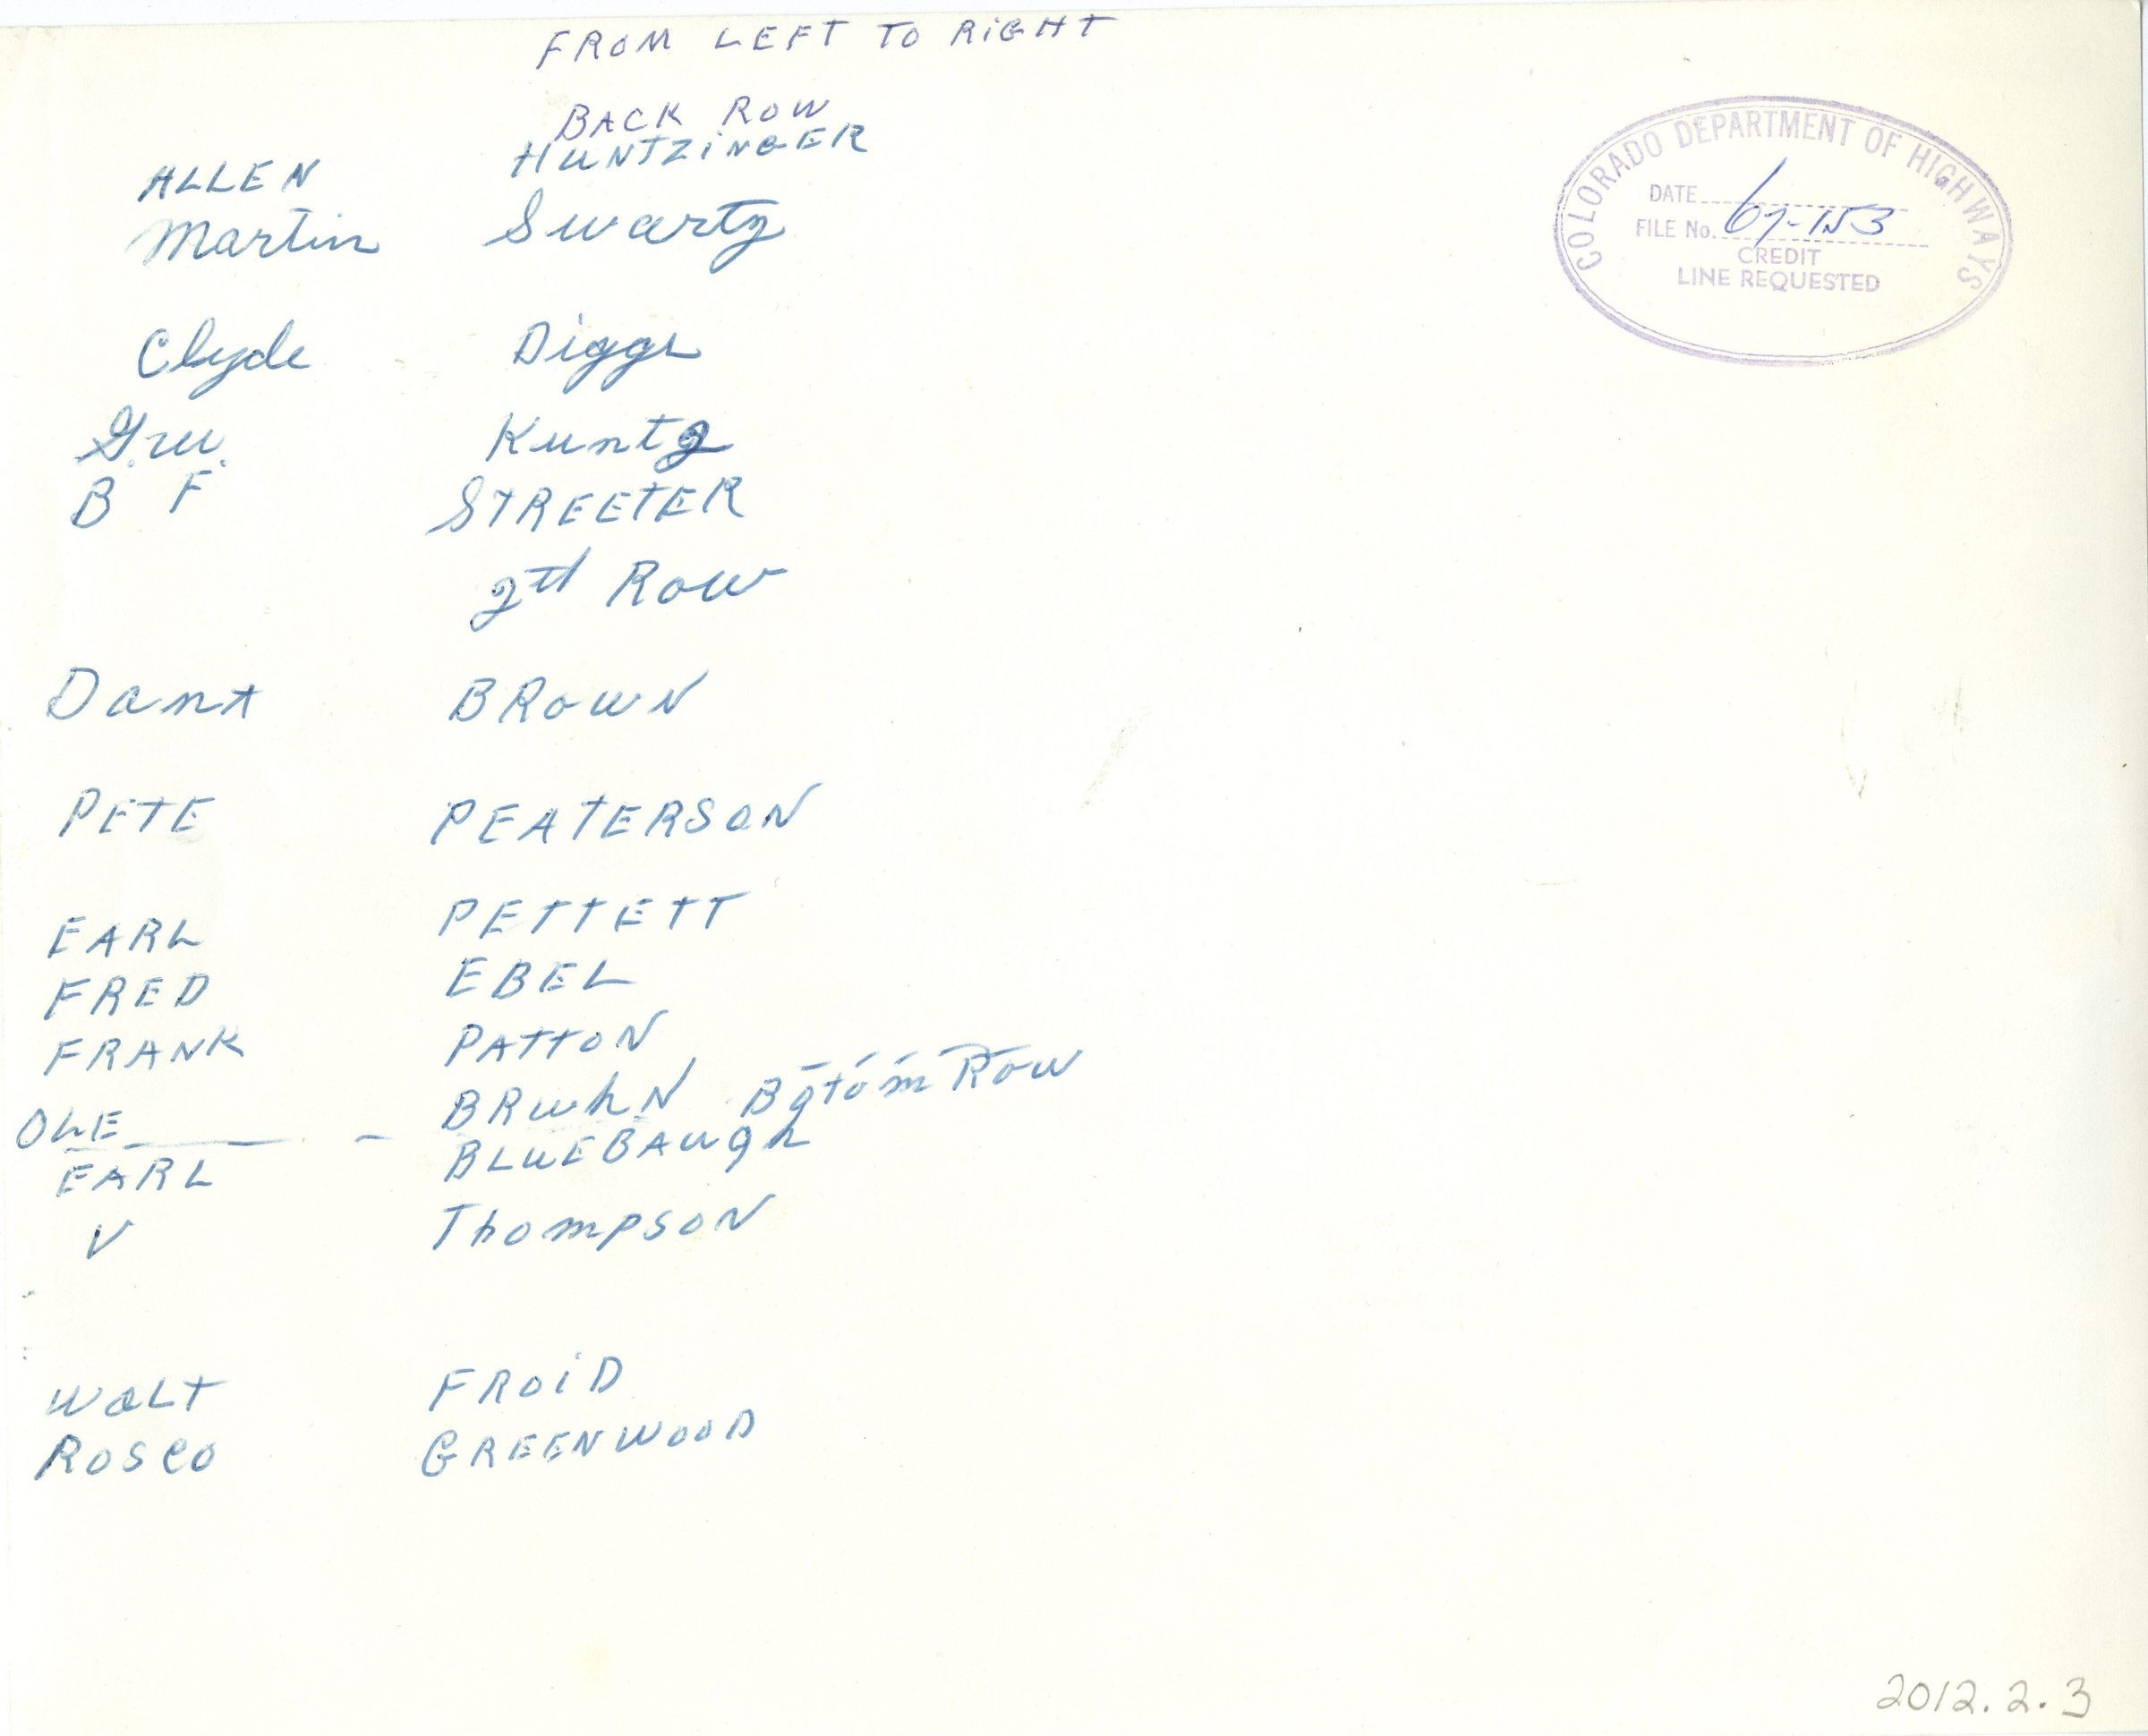 FROM LEFT TO RIGHT
BACK ROW
ALLEN HUNTZINGER
Martin Swartz
Clyde Diggs
G.W. Kuntz
B F STREETER
2th Row
Dana BROWN
PETE PEATERSON
EARL PETTETT
FRED EBEL
FRANK PATTON
OLE BRUhN Bottom Row
EARL BLUEBAUgh
V ThompsoN
WALT FROiD
Rosco GREENWOOD
COLORADO DEPARTMENT OF HIGHWAYS
DATE
FILE No. 67-153
CREDIT
LINE REQUESTED
2012.2.3